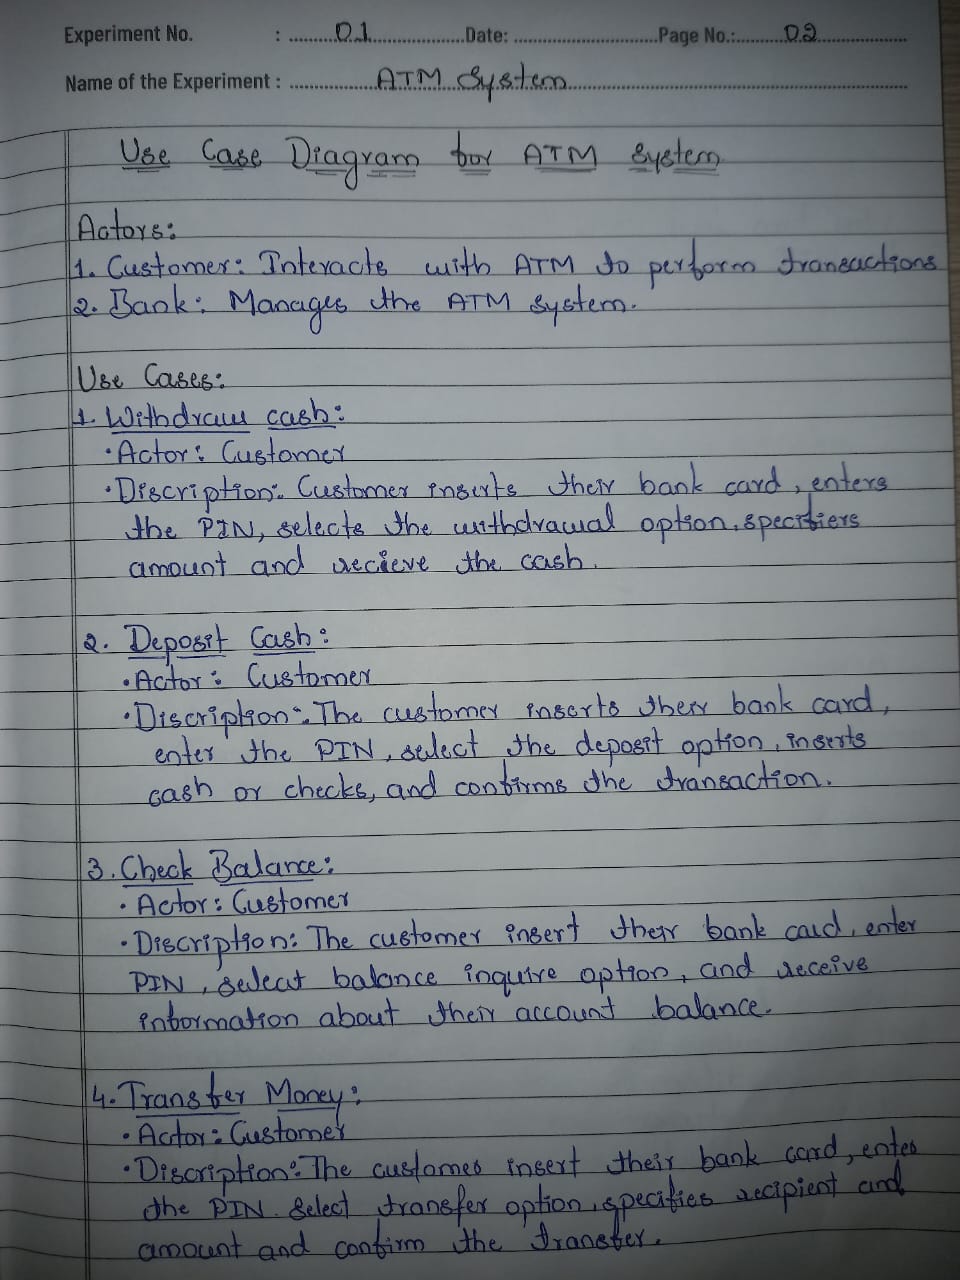 Experiment No. : 01 Date: Page No.: 02
Name of the Experiment : ATM System
Use Case Diagram for ATM System
Actors:
1. Customer: Interacts with ATM to perform transactions
2. Bank: Manages the ATM System.
Use Cases:
1. Withdraw cash:
• Actor: Customer
• Discription: Customer inserts their bank card, enters
the PIN, selects the withdrawal option, specifiers
amount and recieve the cash.
2. Deposit Cash:
• Actor: Customer
• Discription: The customer inserts their bank card,
enter the PIN, select the deposit option, inserts
cash or checks, and confirms the transaction.
3. Check Balance:
• Actor: Customer
• Discription: The customer insert their bank card, enter
PIN, select balance inquire option, and receive
information about their account balance.
4. Transfer Money:
• Actor: Customer
• Discription: The customer insert their bank card, enter
the PIN. Select transfer option, specifies recipient and
amount and confirm the transfer.